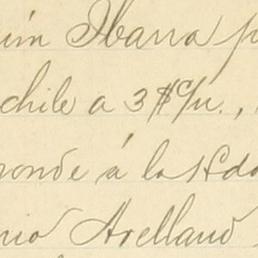 ín Ibarra p
chile a 3 $ c/u.,
ponde á los Hdo
nio Arellano